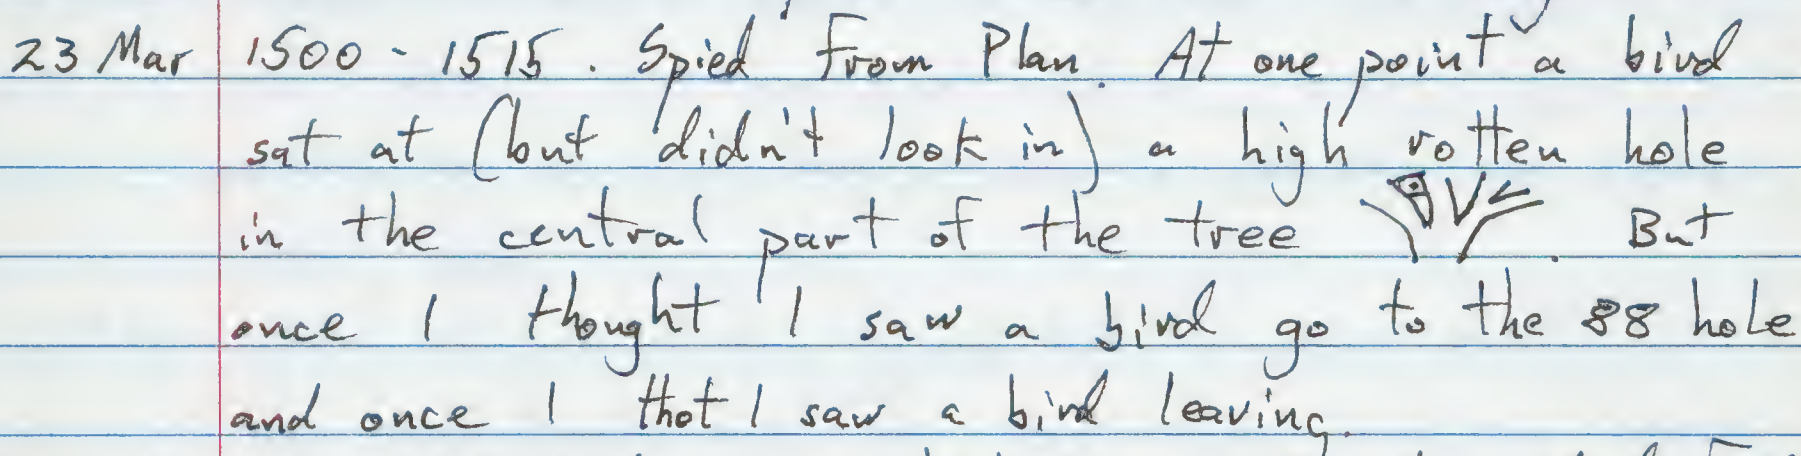 23 Mar 1500 - 1515. Spied from Plan. At one point a bird
sat at (but didn't look in) a high rotten hole
in the central part of the tree . But
once I thought I saw a bird go to the 88 hole
and once I thot I saw a bird leaving.